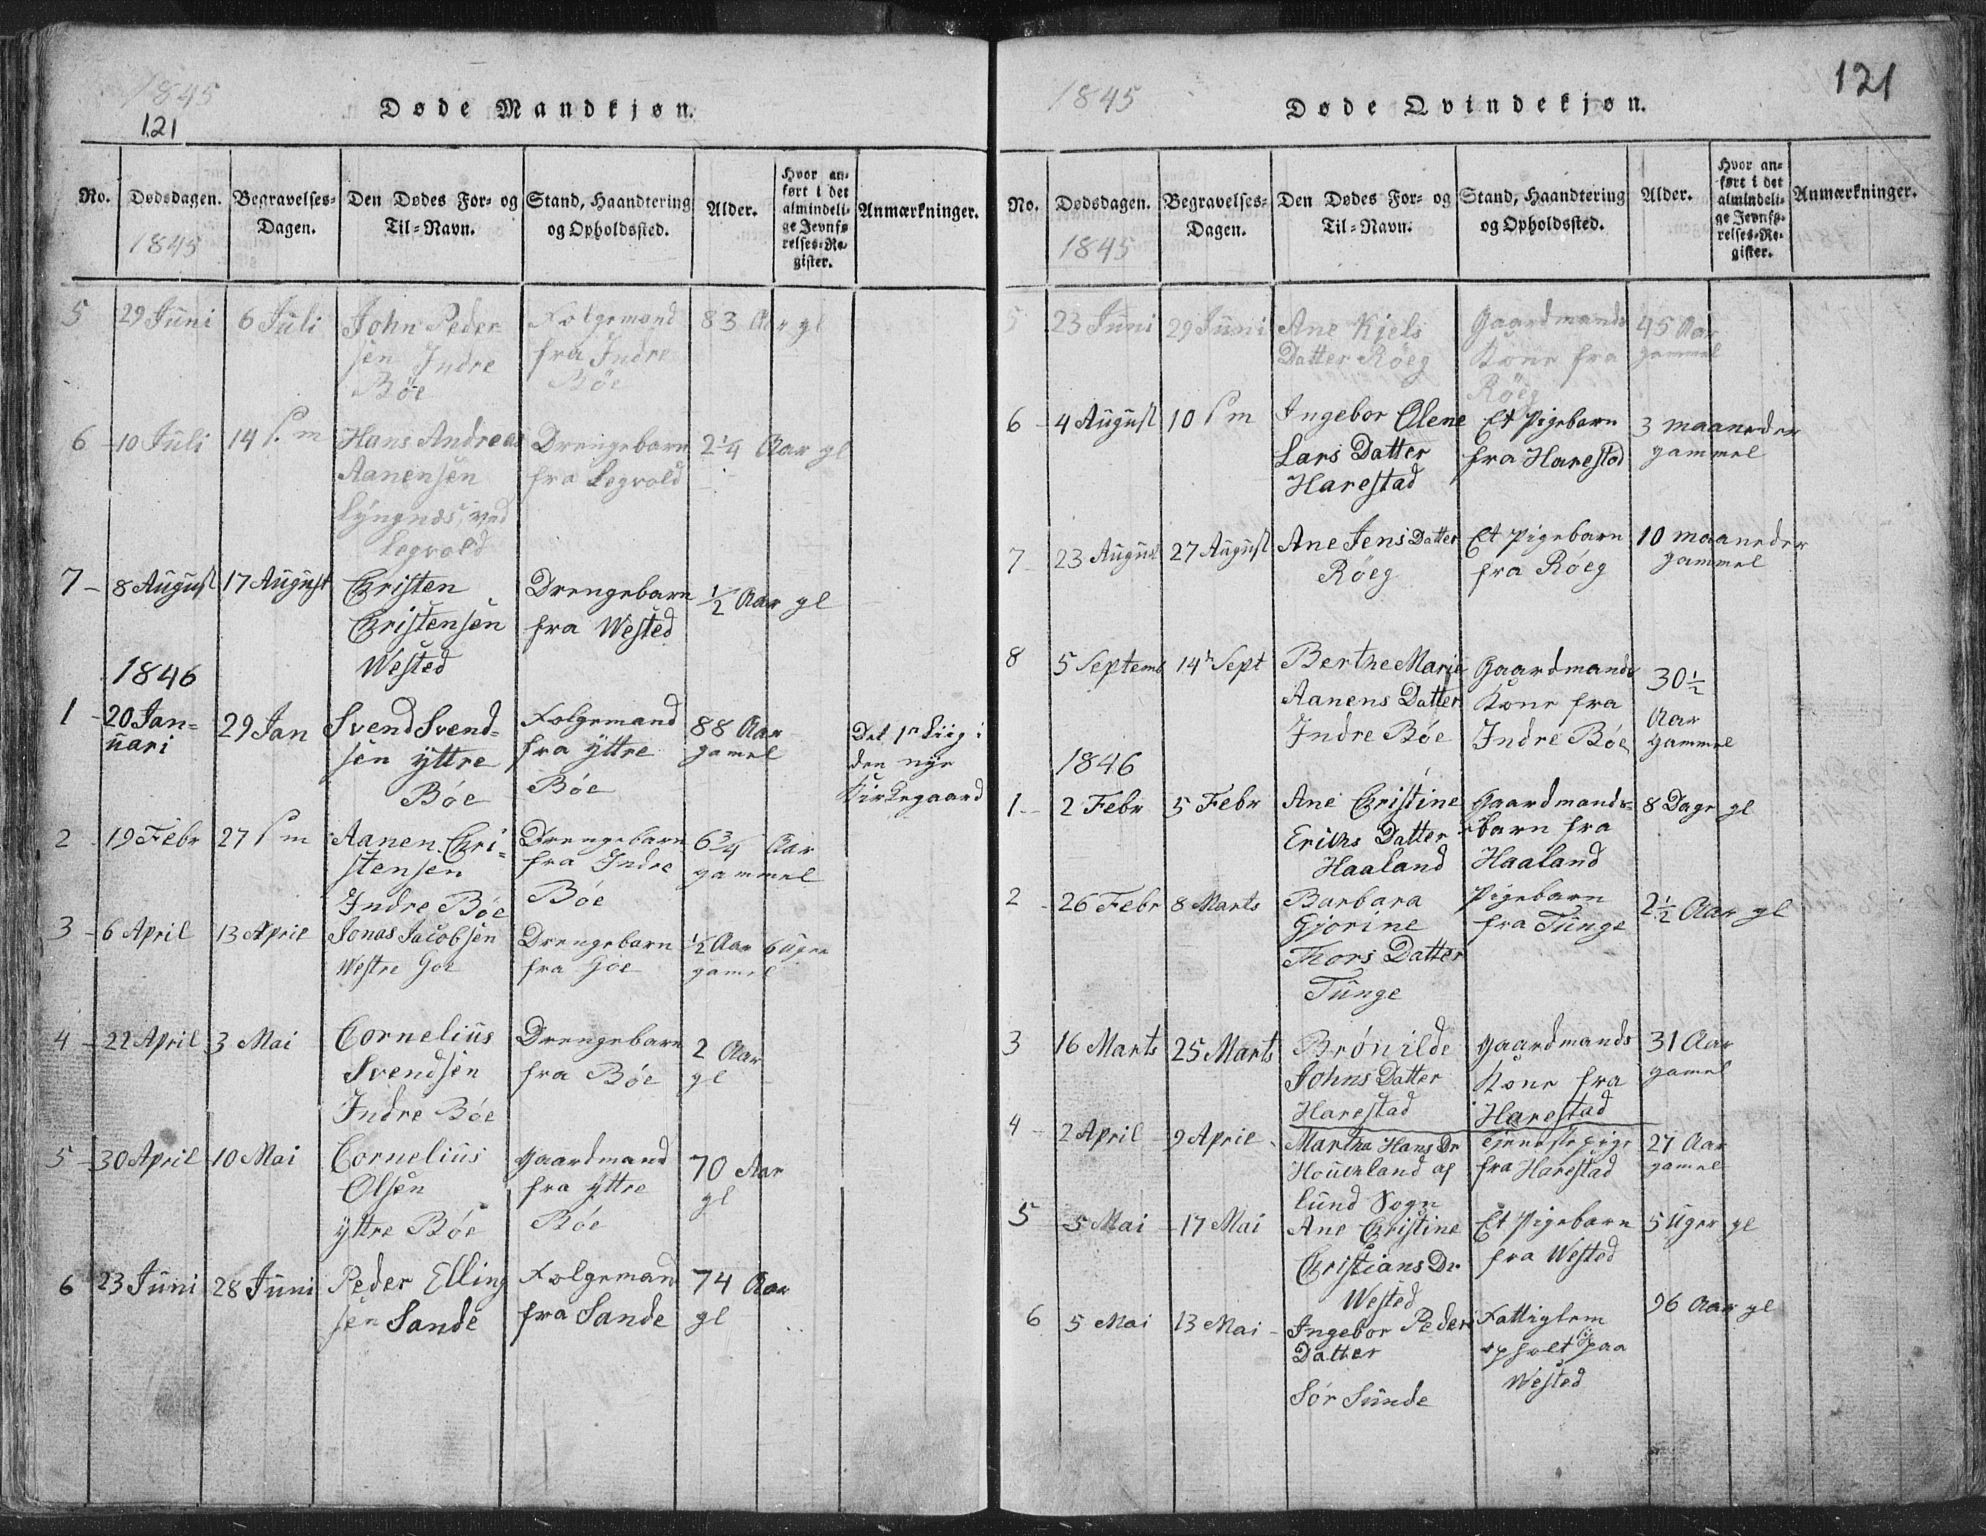 1845
Døde Mandkjøn.
121
No.
Dødsdagen.
1845
Begravelses-
Dagen.
Den Dødes For- og
Til-Navn.
Stand, Haandtering
og Opholdssted.
Alder.
Hvor an-
ført i det
almindeli-
ge Jevnfø-
relses-Re-
gister.
Anmærkninger.
5 29 Juni 6 Juli John Peder Folgemand 83 Aar gl
sen Indre fra Indre
Böe Böe
6 10 Juli 14 S. m Hans Andreas Drengebarn 2 1/4 Aar gl
Aanensen fra Legvold
Lÿngnæs, ved
Legvold
7 - 8 August 17 August Christen Drengebarn 1/2 Aar gl
Christensen fra Wested
Wested
1846
1 - 20 Jan= 29 Jan Svend Svend= Folgemand 88 Aar Det 1ste Liig i
uari sen ÿttre fra ÿttre gamel den nÿe
Böe Böe Kirkegaard
2 - 19 Febr 27 S m Aanen Chri= Drengebarn 6 3/4 Aar
stensen fra Indre gammel
Indre Böe Böe
3 - 6 April 13 April Jonas Jacobsen Drengebarn 1/2 Aar 6 Uger
Westre Goe fra Goe gamel
4 - 22 April 3 Mai Cornelius Drengebarn 2 Aar
Svendsen fra Böe gl
Indre Böe
5 - 30 April 10 Mai Cornelius gaardmand 70 Aar
Olsen fra ÿttre gl
ÿttre Böe Böe
6 23 Juni 28 Juni Peder Elling Folgeman 74 Aar
sen Sande fra Sande gl
1845
Døde Qvindekjøn.
121
No.
Dødsdagen.
1845
Begravelses-
Dagen.
Den Dødes For- og
Til-Navn.
Stand, Haandtering
og Opholdssted.
Alder.
Hvor an-
ført i det
almindeli-
ge Jevnfø-
relses-Re-
gister.
Anmærkninger.
5 23 Juni 29 Juni Ane Kjels Gaardmands 45 Aar
Datter Röeg Kone fra gammel
Röeg
6 - 4 August 10 S m Ingebor Olene Et Pigebarn 3 maaneder
Lars Datter fra Harestad gammel
Harestad
7 - 23 August 27 August Ane Jens Datter Et Pigebarn 10 maaneder
Röeg fra Röeg gammel
8 5 Septemb 14 Sept Berthe Marie Gaardmands 30 1/2
Aanens Datter Kone fra Aar
Indre Böe Indre Böe gammel
1846
1 - 2 Febr 5 Febr Ane Christine Gaardmands= 8 Dage gl
Eriks Datter barn fra
Haaland Haaland
2 - 26 Febr 8 Marts Barbara Pigebarn 2 1/2 Aar gl
Gjorine fra Tunge
Thors Datter
Tunge
3 16 Marts 25 Marts Brönilde gaardmands 31 Aar
Johns Datter Kone fra gamel
Harestad Harestad
4 - 2 April - 9 April - Martha Hans Dr Tjenestepige 27 Aar
Houenland af fra Harestad gamel
Lund Sogn
5 - 5 Mai - 17 Mai Ane Christine Et Pigebarn 5 Uger gl
Christians Dr fra Wested
Wested
6 5 Mai 13 Mai - Ingebor Peders Fattiglem 96 Aar gl
Datter opholt sig paa
Sör Sunde Wested